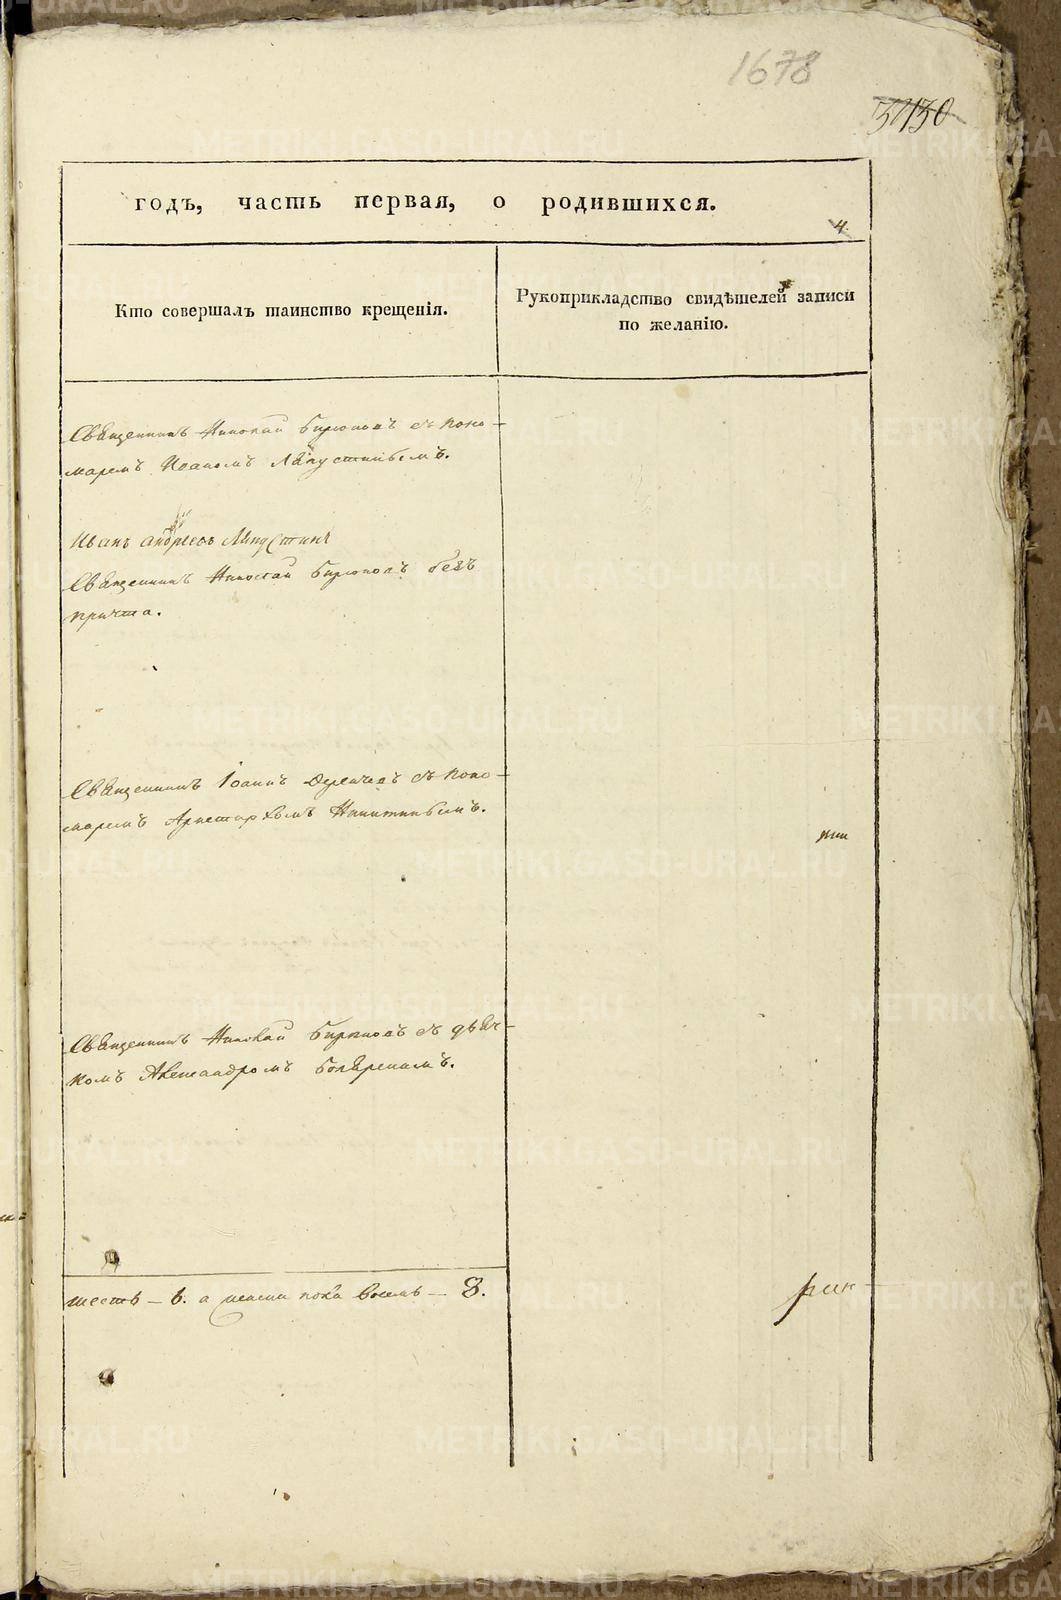 1678
30130
годъ, часть первая, о родившихся.
4.
Кто совершалъ таинство крещенія.
Рукоприкладство свидѣтелей записи
по желанію.
Священникъ Николай Бирюковъ съ поно-
маремъ Иоаномъ Ляпустинымъ.
Иванъ Андреевъ Ляпустинъ
Священникъ Николай Бирюковъ безъ
причта.
Священникъ Іоаннъ съ поно-
маремъ Аристархомъ Никитинымъ.
Священникъ Николай Бирюковъ съ дьяч-
комъ Александромъ Бояркинымъ.
шесть – 6. а женска пола восемь – 8.
METRIKI.GASO-URAL.RU